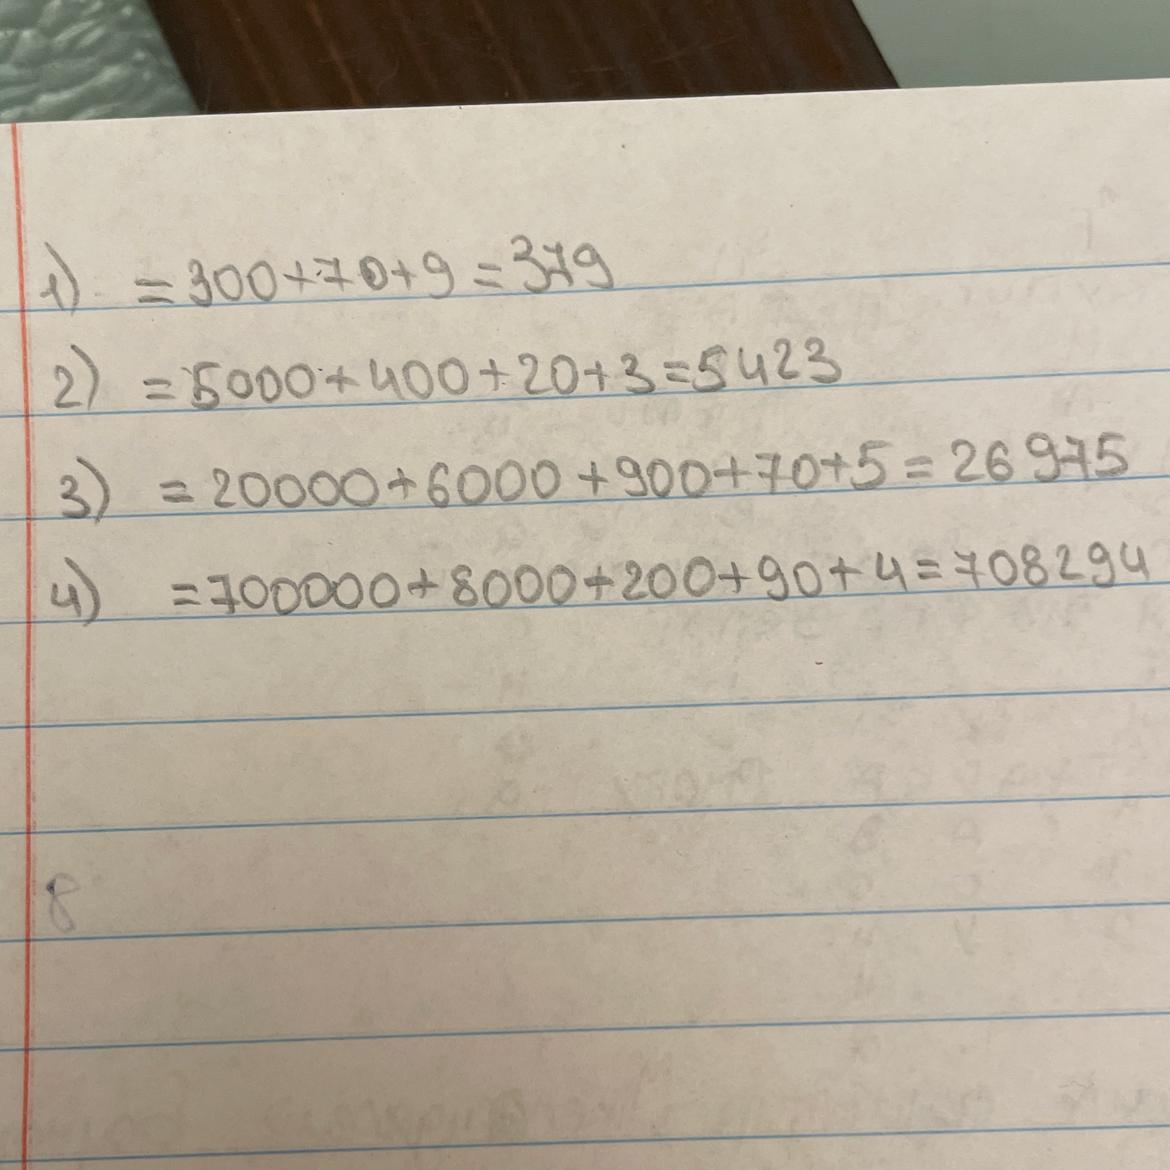 1) =300+70+9=379
2) =5000+400+20+3=5423
3) =20000+6000+900+70+5=26975
4) =700000+8000+200+90+4=708294
8